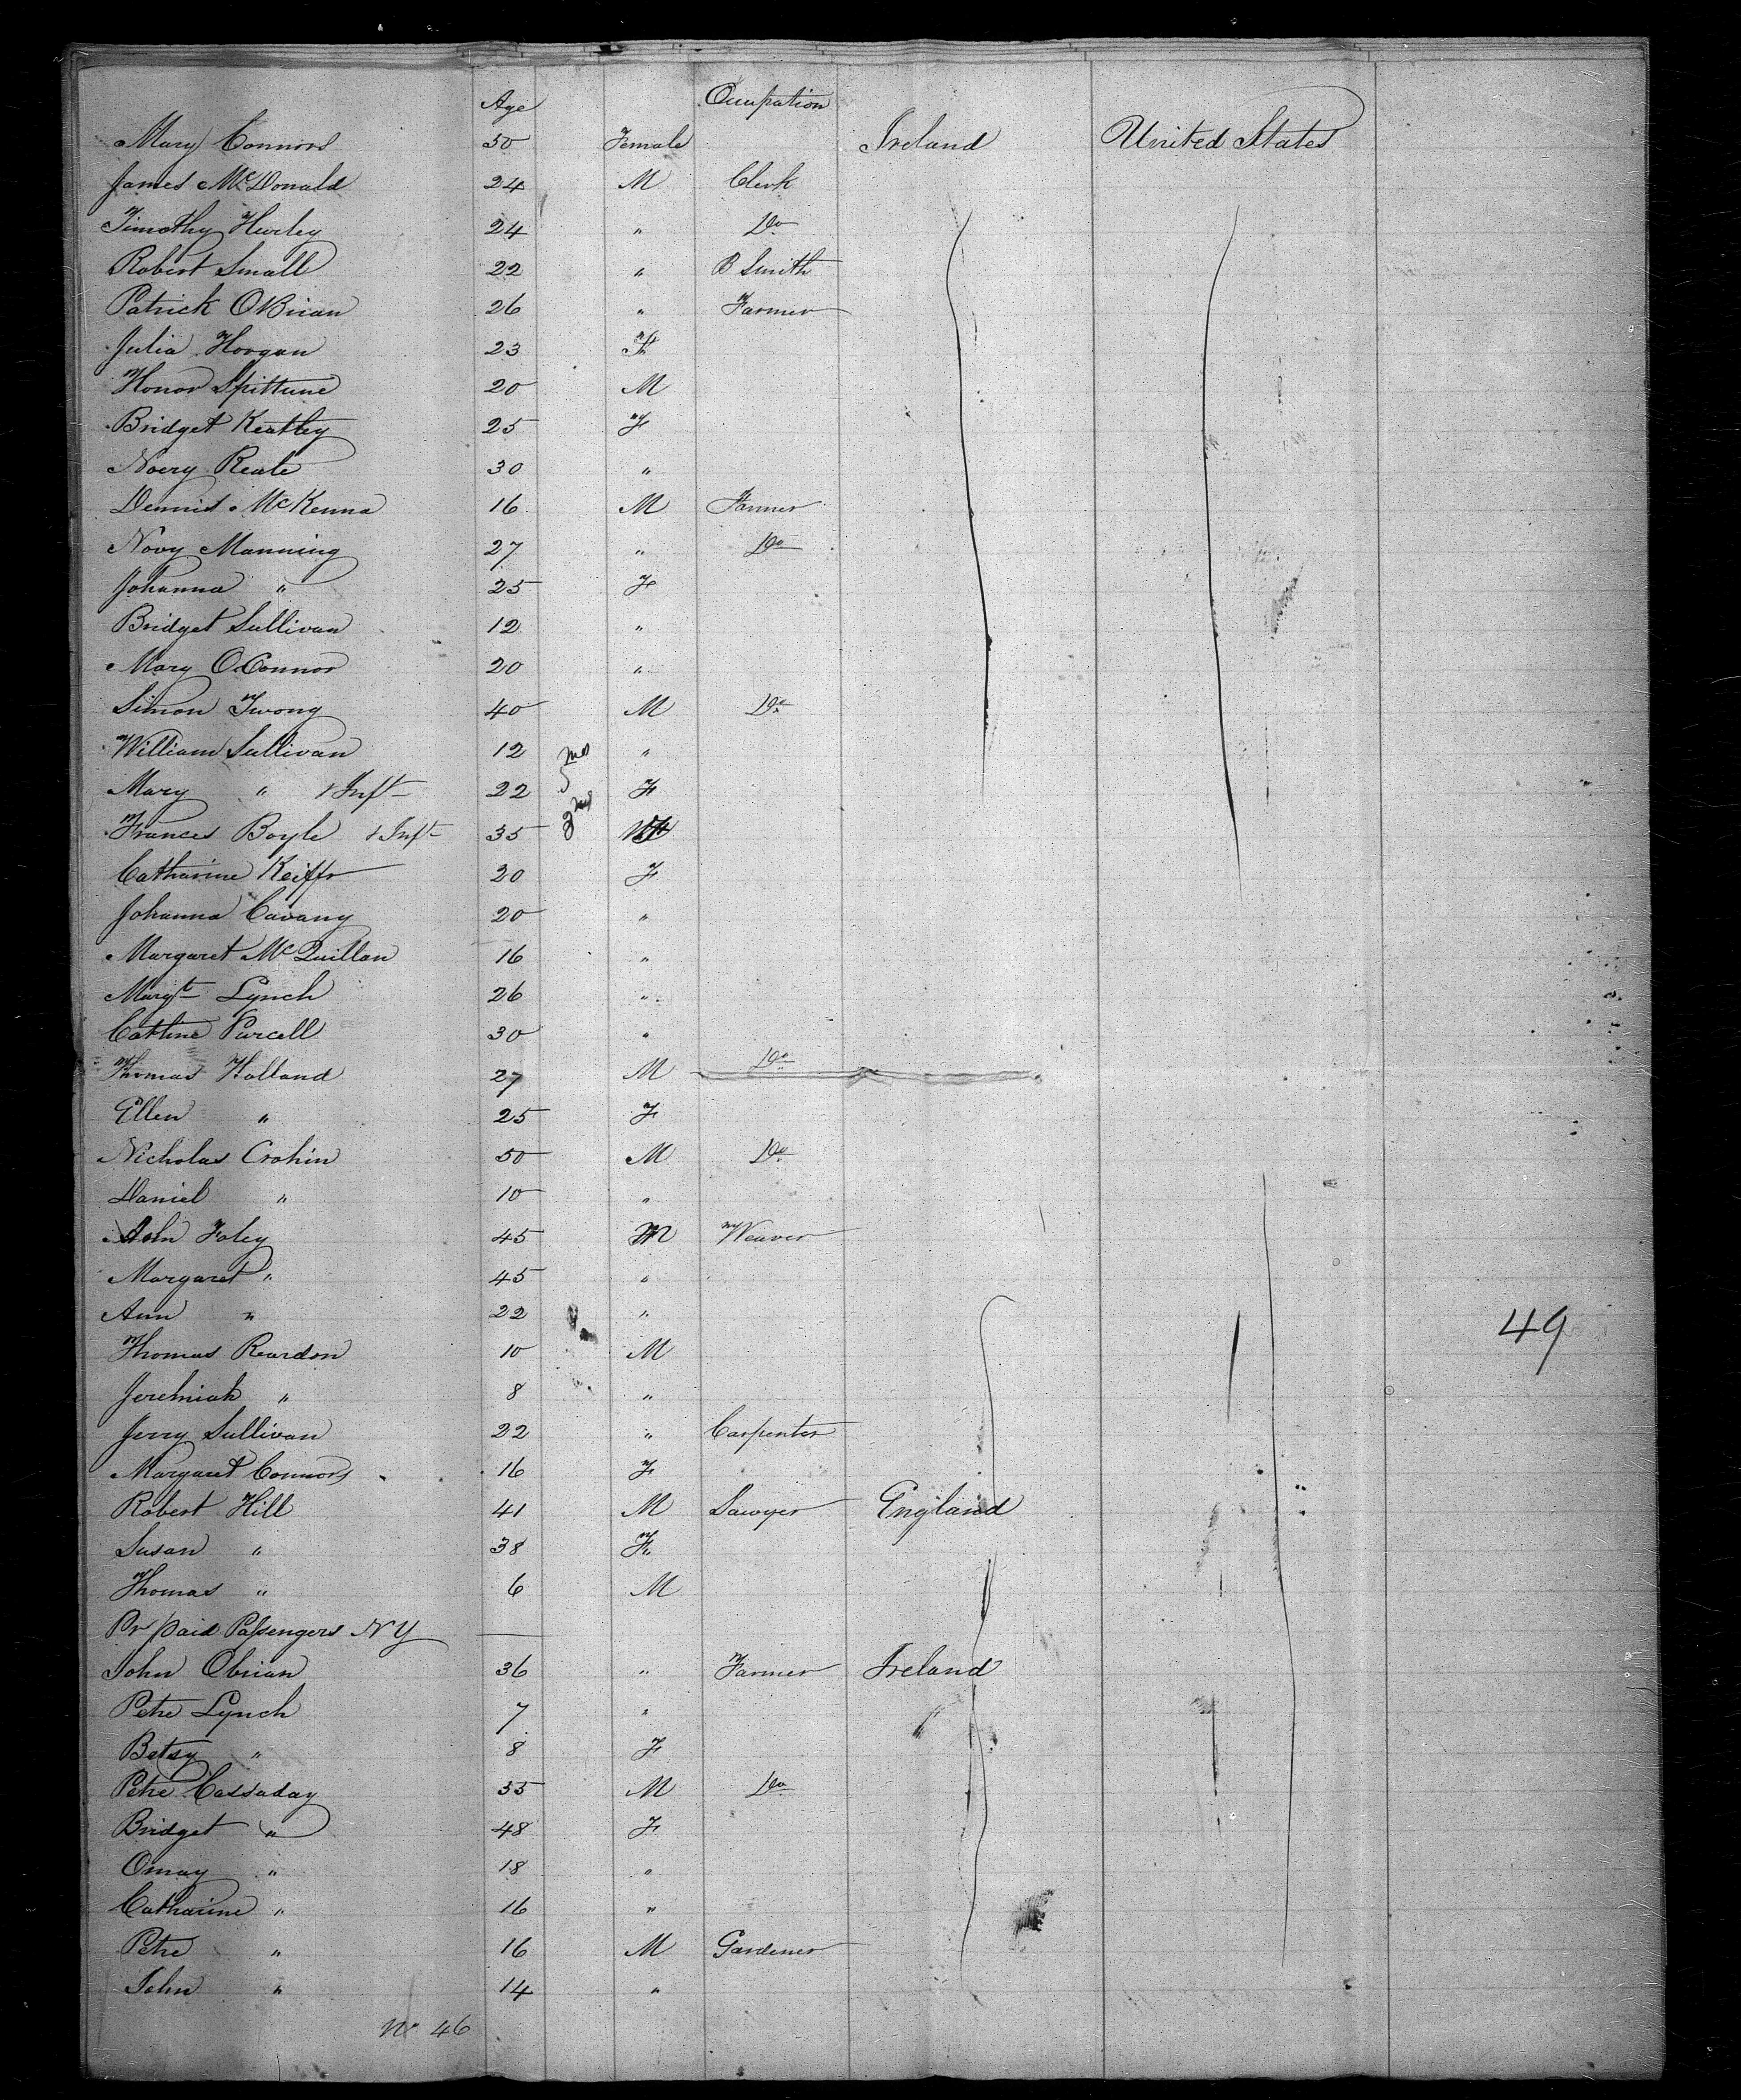 Age Occupation
Mary Connors 50 Female Ireland United States
James McDonald 24 M Clerk
Timothy Hurley 24 " Do
Robert Small 22 " B Smith
Patrick OBrian 26 " Farmer
Julia Hoogan 23 F
Honor Spittune 20 M
Bridget Keathey 25 F
Noery Reale 30 "
Dennis McKenna 16 M Farmer
Novy Manning 27 " Do
Johanna " 25 F
Bridget Sullivan 12 "
Mary OConnor 20 "
Simon Twong 40 M Do
William Sullivan 12 "
Mary " 1 Inft 22 5 mos F
Frances Boyle 1 Inft 35 F
Catharine Keiffr 20 F
Johanna Cavany 20 "
Margaret McQuillan 16 "
Margt Lynch 26 "
Cathine Purcell 30 "
Thomas Holland 27 M Do
Ellen " 25 F
Nicholas Crohin 50 M Do
Daniel " 10 "
John Foley 45 M Weaver
Margaret " 45 "
Ann " 22 "
49
Thomas Reardon 10 M
Jeremiah " 8 "
Jerry Sullivan 22 " Carpenter
Margaret Connors 16 F
Robert Hill 41 M Sawyer England
Susan " 38 F
Thomas " 6 M
Pr paid Passengers NY
John Obrian 36 " Farmer Ireland
Petre Lynch 7 " "
Betsy " 8 F
Petre Cassaday 55 M Do
Bridget " 48 F
Omay " 18 "
Catharine " 16 "
Petre " 16 M Gardener
John " 14 "
No 46